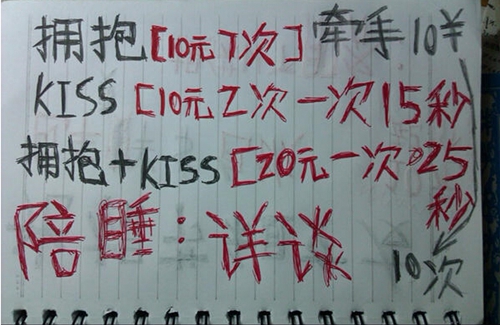 拥抱[10元1次] 牵手10¥
KISS [10元2次一次15秒
拥抱+KISS [20元一次25
秒
陪睡:详谈
10次